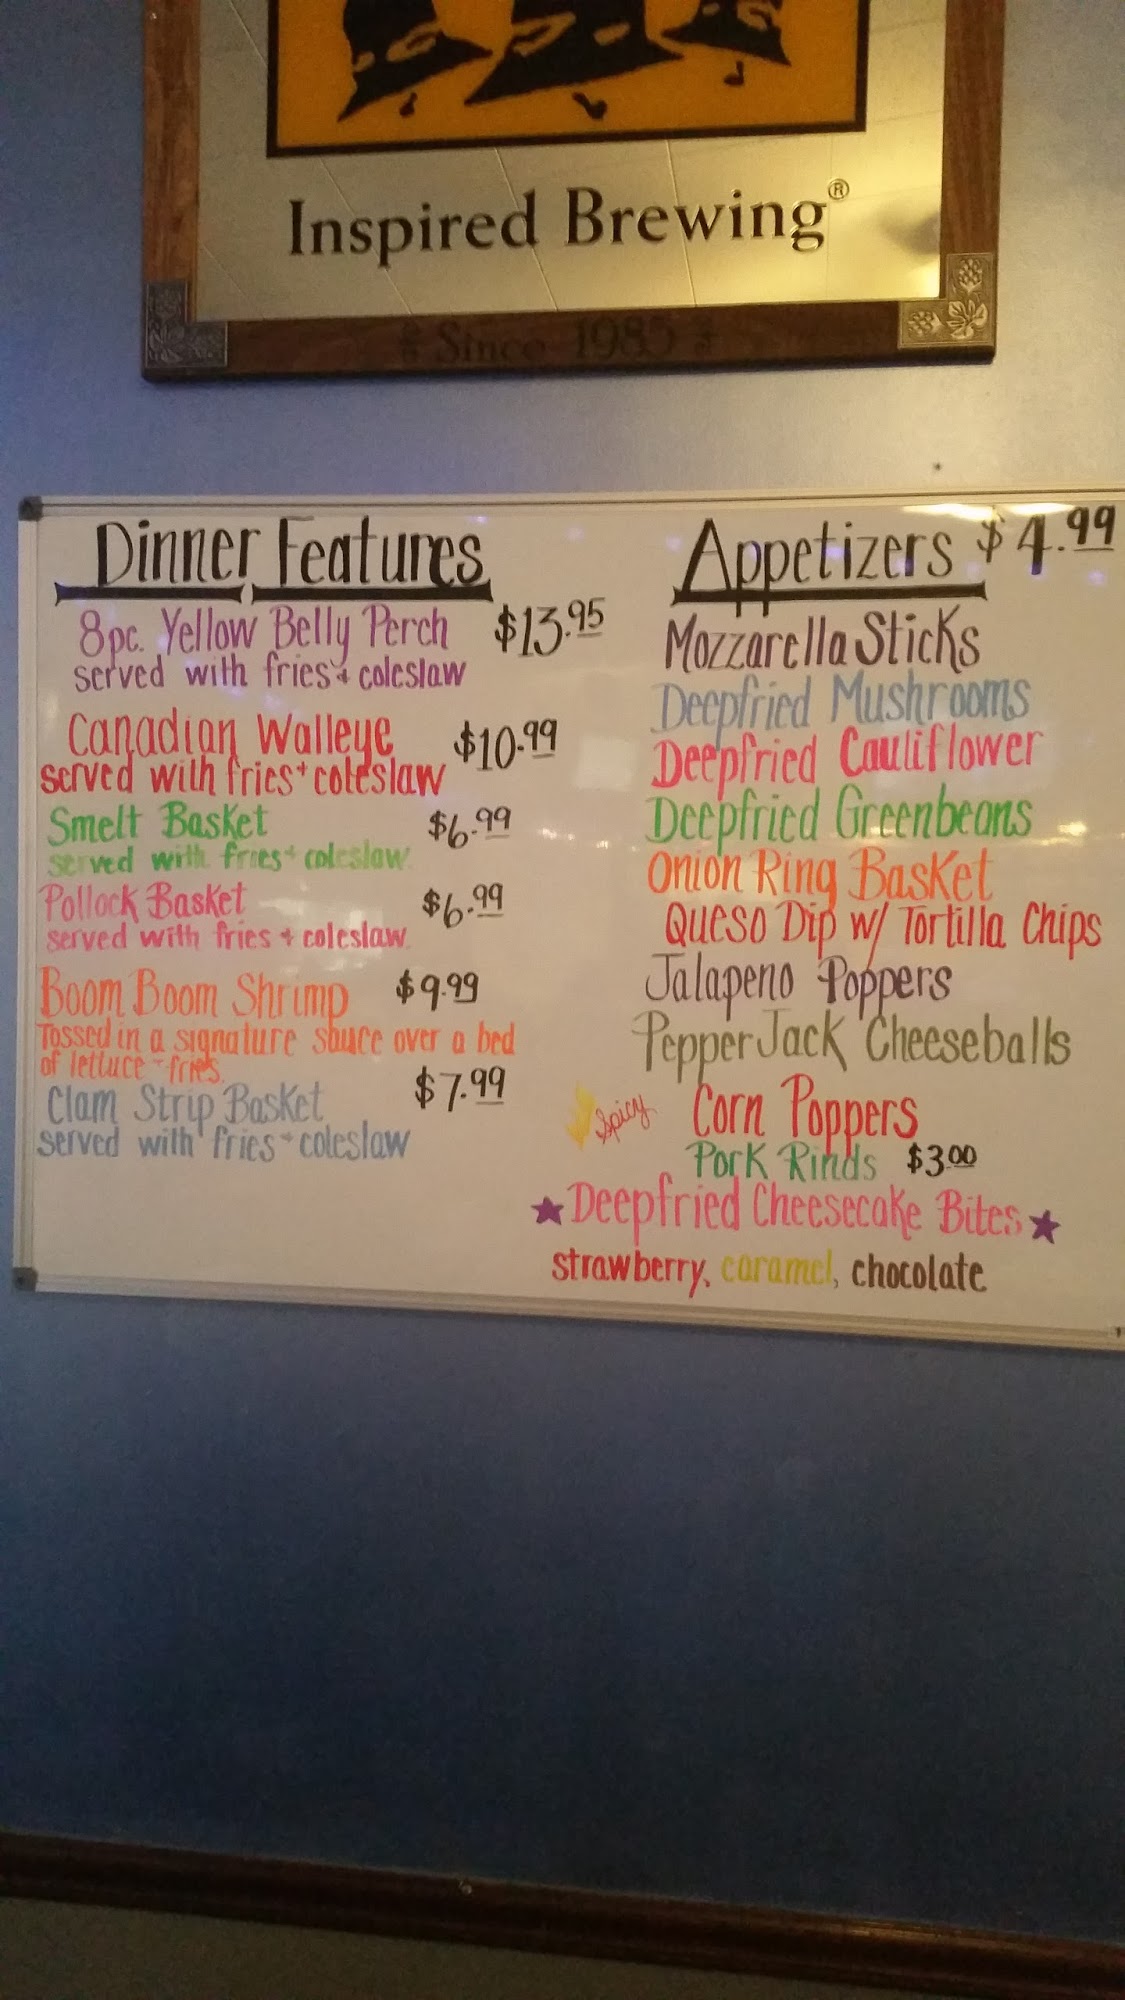 Inspired Brewing®
Since 1985
Dinner Features
8pc. Yellow Belly Perch $13.95
served with fries + coleslaw
Canadian Walleye $10.99
served with fries + coleslaw
Smelt Basket $6.99
served with fries + coleslaw
Pollock Basket $6.99
served with fries + coleslaw
Boom Boom Shrimp $9.99
Tossed in a signature sauce over a bed
of lettuce + fries.
Clam Strip Basket $7.99
served with fries + coleslaw
Appetizers $4.99
Mozzarella Sticks
Deepfried Mushrooms
Deepfried Cauliflower
Deepfried Greenbeans
Onion Ring Basket
Queso Dip w/ Tortilla Chips
Jalapeno Poppers
PepperJack Cheeseballs
Spicy Corn Poppers
Pork Rinds $3.00
Deepfried Cheesecake Bites
strawberry, caramel, chocolate